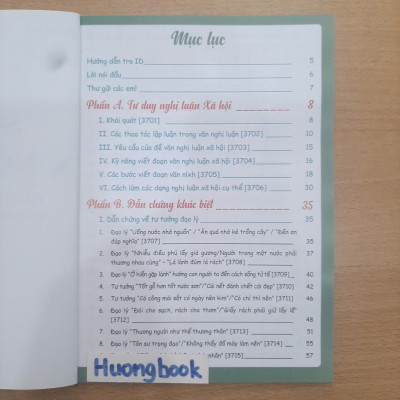 Mục lục
Hướng dẫn tra ID 5
Lời nói đầu 6
Thư gửi các em! 7
Phần A. Tư duy nghị luận Xã hội 8
I. Khái quát [3701] 8
II. Các thao tác lập luận trong văn nghị luận [3702] 10
III. Yêu cầu của đề văn nghị luận xã hội [3703] 15
IV. Kỹ năng viết đoạn văn nghị luận xã hội [3704] 16
V. Các bước viết đoạn văn nlxh [3705] 21
VI. Cách làm các dạng nghị luận xã hội cụ thể [3706] 30
Phần B. Dẫn chứng khác biệt 35
I. Dẫn chứng về tư tưởng đạo lý 35
1. Đạo lý "Uống nước nhớ nguồn" / "Ăn quả nhớ kẻ trồng cây" / "Đền ơn
đáp nghĩa" [3707] 35
2. Đạo lý "Nhiễu điều phủ lấy giá gương/Người trong một nước phải
thương nhau cùng" - "Lá lành đùm lá rách" [3708] 37
3. Đạo lý "Ở hiền gặp lành" hướng con người ta đến cách sống tử tế [3709] 40
4. Tư tưởng "Tốt gỗ hơn tốt nước sơn"/"Cái nết đánh chết cái đẹp" [3710] 42
5. Tư tưởng "Có công mài sắt có ngày nên kim"/"Có chí thì nên" [3711] 46
6. Đạo lý "Đói cho sạch, rách cho thơm"/"Giấy rách phải giữ lấy lề"
[3712] 48
7. Đạo lý "Thương người như thể thương thân" [3713] 51
8. Đạo lý "Tôn sư trọng đạo"/"Không thầy đố mày làm nên" [3714] 55
[3715] 57
Huongbook